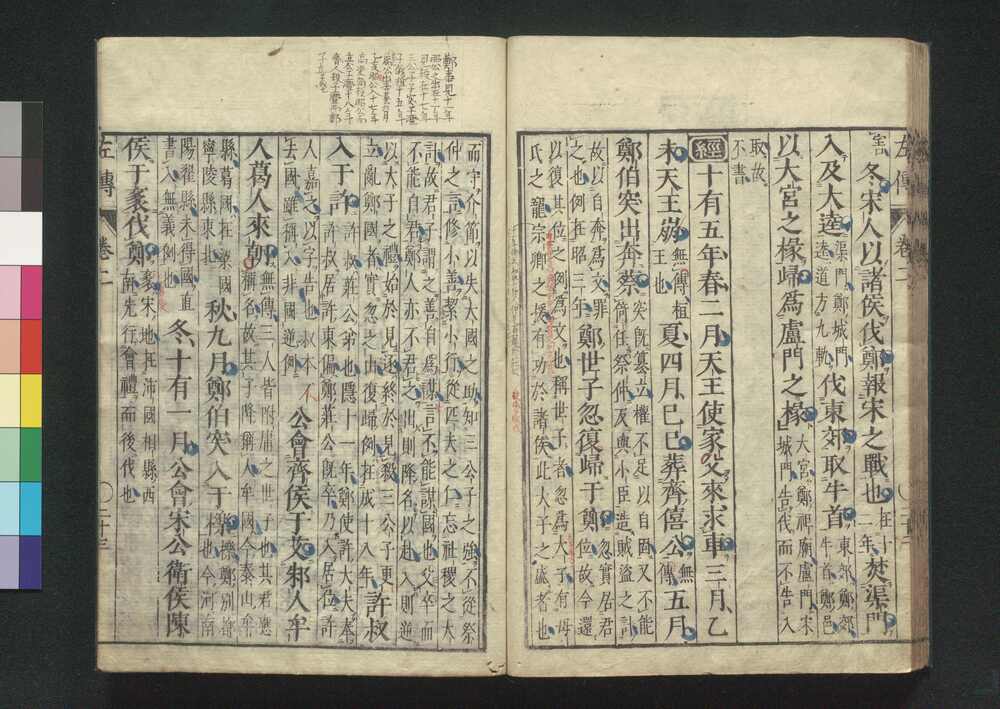 害 冬宋人以諸侯伐鄭報宋之戰也 在十二年 焚渠門
入及大逵 渠門鄭城門逵道方九軌 伐東郊取牛首 東郊鄭郊牛首鄭邑
以大宮之椽歸爲盧門之椽 大宮鄭祖廟盧門宋城門告伐而不告入
取故不書
經 十有五年春二月天王使家父來求車三月乙
未天王崩 無傳桓王也 夏四月己巳葬齊僖公 無傳 五月
鄭伯突出奔蔡 突既簒立權不足以自固又不能倚任祭仲反與小臣造賊盜之計
故以自奔爲文罪之也例在昭三年 鄭世子忽復歸于鄭 忽實居君位故今還
以復其位之例爲文也稱世子者忽爲大子有母氏之寵宗卿之援有功於諸侯此大子之盛者也
而守介節以失大國之助知三公子之強不從祭仲之言修小善潔小行從匹夫之仁忘社稷之大
計故君子謂之善自爲謀言不能謀國也父卒而不能自君鄭人亦不君之出則降名以赴入則逆
以大子之禮始於見逐終於見殺三公子更立亂鄭國者實忽之由復歸例在成十八年 許叔
入于許 許叔莊公弟也隱十一年鄭使許大夫奉許叔居許東偏鄭莊公既卒乃入居位許
人嘉之以字告也叔本不去國雖稱入非國逆例 公會齊侯于艾邾人牟
人葛人來朝 無傳三人皆附庸之世子也其君應稱名故其子降稱人牟國今泰山牟
縣葛國在梁國寧陵縣東北 秋九月鄭伯突入于櫟 櫟鄭別都也今河南
陽翟縣未得國直書入無義例也 冬十有一月公會宋公衛侯陳
侯于袲伐鄭 袲宋地在沛國相縣西南先行會禮而後伐也
左傳 卷二 二十三